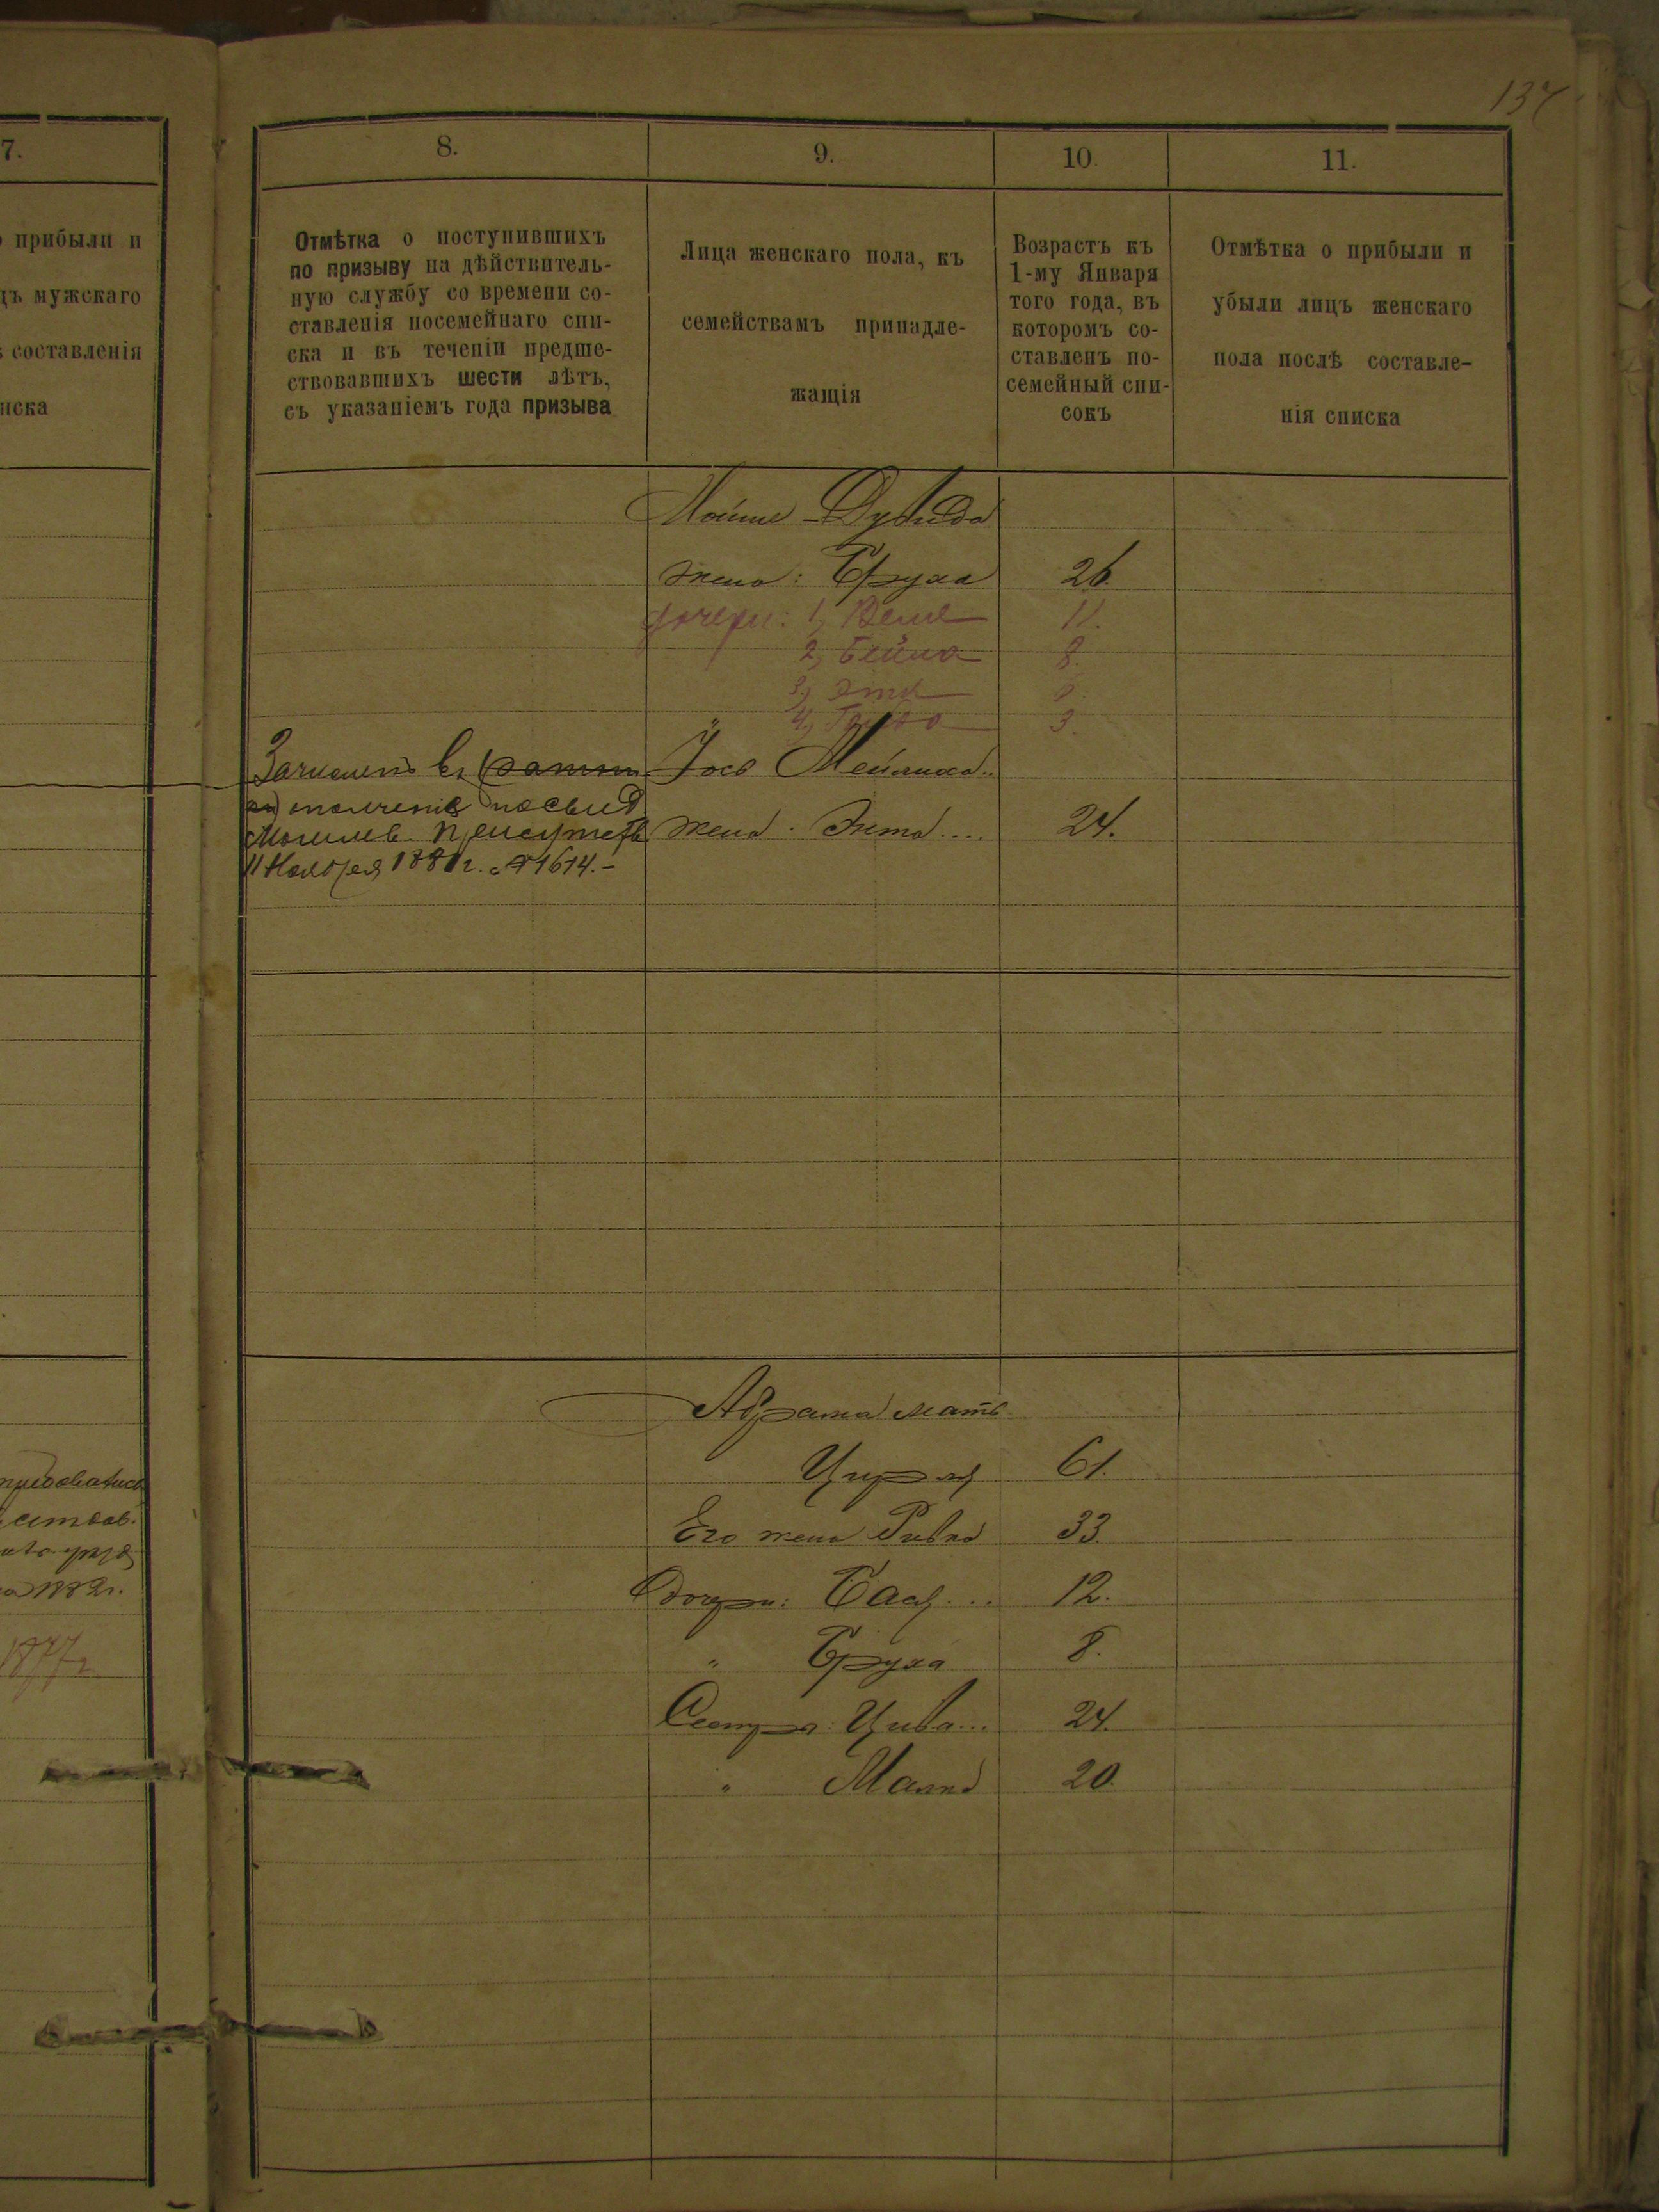 137
7.
прибыли и
мужскаго
составленія
8.
9.
10.
11.
Отмѣтка о поступившихъ
по призыву на дѣйствитель-
ную службу со времени со-
ставленія посемейнаго спи-
ска и въ теченіи предше-
ствовавшихъ шести лѣтъ,
съ указаніемъ года призыва
Лица женскаго пола, къ
семействамъ принадле-
жащія
Возрастъ къ
1-му Января
того года, въ
которомъ со-
ставленъ по-
семейный спи-
сокъ
Отмѣтка о прибыли и
убыли лицъ женскаго
пола послѣ составле-
нія списка
Дувида
жена: Бруха 26.
дочери: 1, Веля 11.
2, Бейла 8.
3, Этя
4, 3.
Зачисленъ въ Іось Мейлиха..
ополченіе по свид
Могилев. Присутств жена. Энта.... 24.
11 Ноября 1881г. № 1614.-
Абрама мать
Цирля 61.
Его жена Ривка 33.
Дочери: Бася... 12.
" Бруха 8.
Сестра: Цива... 24.
" Малка 20.
1882г.
1877г.